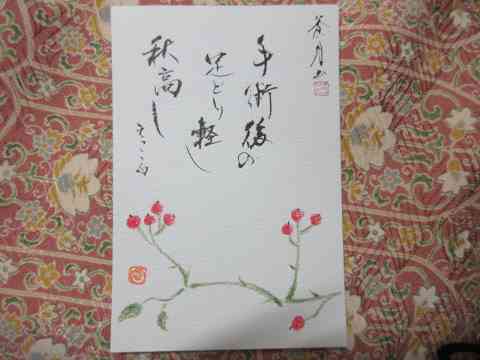 手術後の
足どり軽し
秋高し